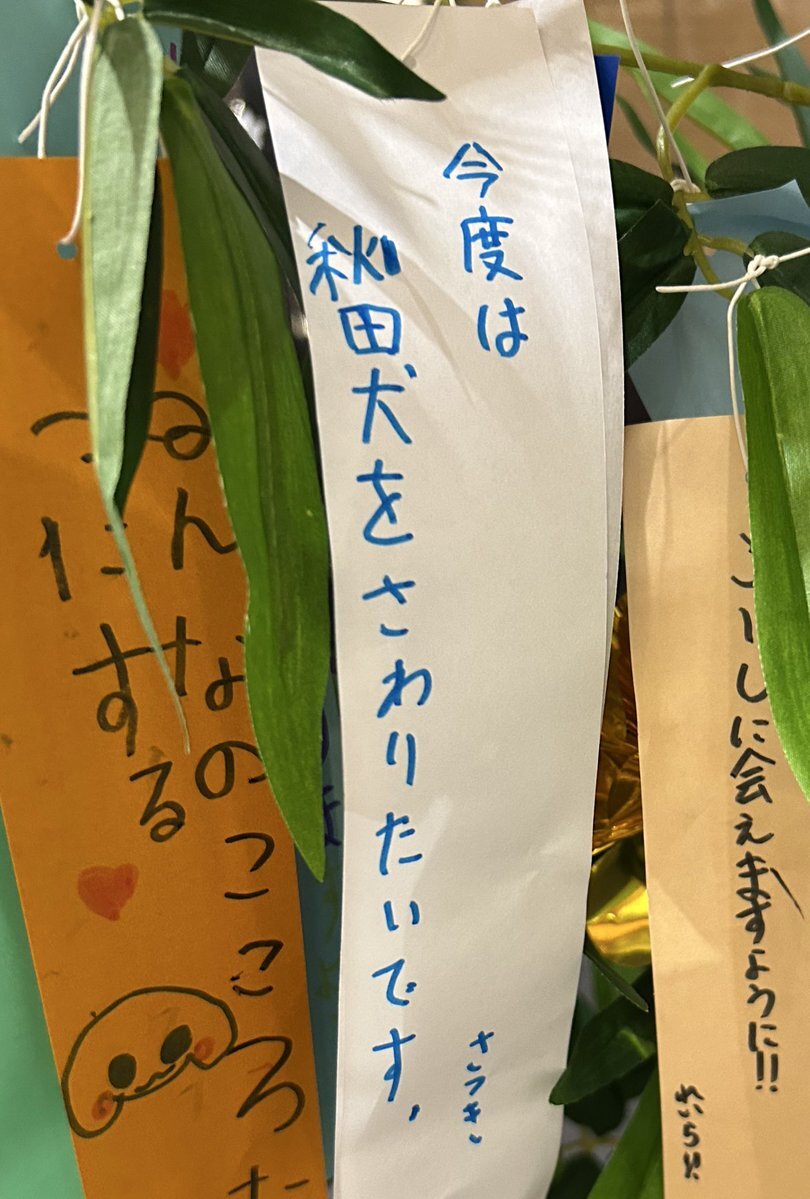 に会えますように!!
れいら!!
今度は
秋田犬をさわりたいです。
さつき
みんなのこころ
つにする